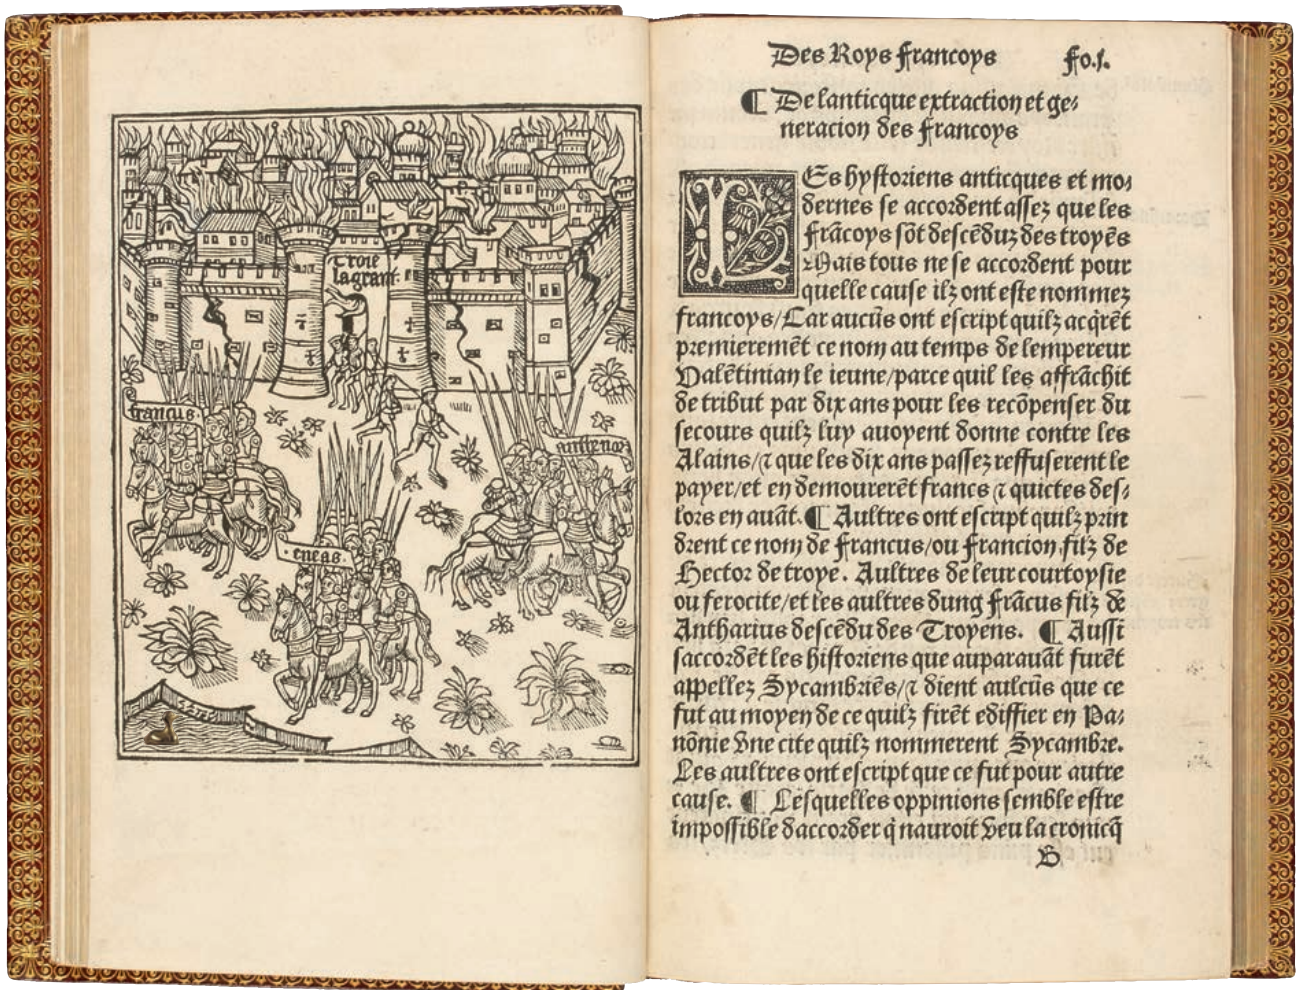 Troie
la grant.
francus.
eneas.
anthenor
Des Roys francoys fo.j.
¶ De lanticque extraction et ge⸗
neracion des francoys
LEs hystoriens anticques et mo⸗
dernes se accordent assez que les
frãcoys sõt descẽduz des troyẽs
Mais tous ne se accordent pour
quelle cause ilz ont este nommez
francoys/Car aucũs ont escript quilz acq̃rẽt
premieremẽt ce nom au temps de lempereur
Valẽtinian le ieune/parce quil les affrãchit
de tribut par dix ans pour les recõpenser du
secours quilz luy auoyent donne contre les
Alains/⁊ que les dix ans passez reffuserent le
payer/et en demourerẽt francs ⁊ quictes des⸗
lors en auãt. ¶ Aultres ont escript quilz prin
drent ce nom de francus/ou francion filz de
Hector de troye. Aultres de leur courtoysie
ou ferocite/et les aultres dung frãcus filz de
Antharius descẽdu des Troyens. ¶ Aussi
saccordẽt les historiens que auparauãt furẽt
appellez Sycambriẽs/⁊ dient aulcũs que ce
fut au moyen de ce quilz firẽt ediffier en Pa⸗
nõnie vne cite quilz nommerent Sycambre.
Les aultres ont escript que ce fut pour autre
cause. ¶ Lesquelles oppinions semble estre
impossible daccorder q̃ nauroit veu la cronicq̃
B